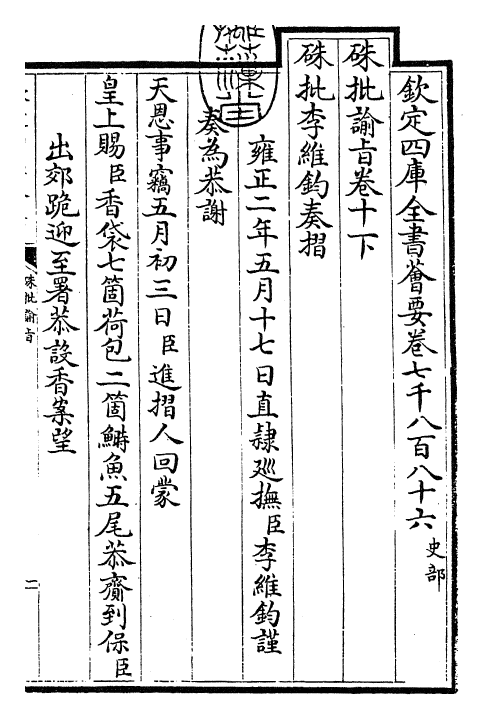 欽定四庫全書薈要卷七千八百八十六史部
硃批諭旨卷十一下
硃批李維鈞奏摺
雍正二年五月十七日直隸廵撫臣李維鈞謹
奏為恭謝
天恩事竊五月初三日臣進摺人回蒙
皇上賜臣香袋七箇荷包二箇鰣魚五尾恭齎到保臣
出郊跪迎至署恭設香案望
硃批諭旨